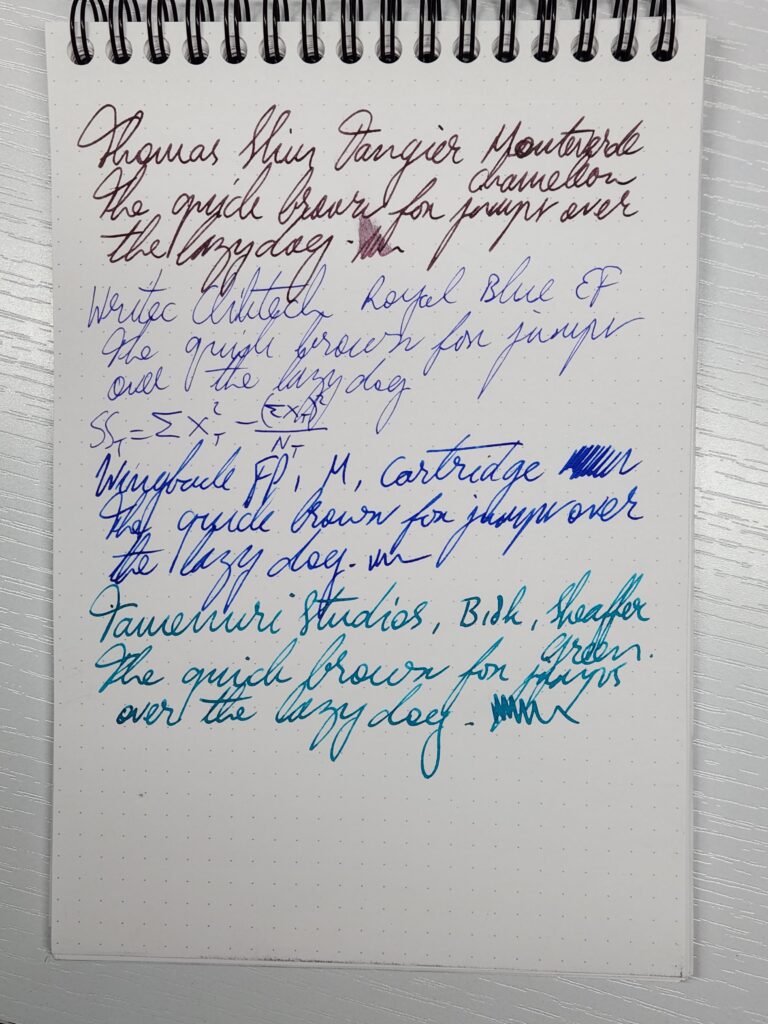 Thomas Shin Tangier Monteverde
chameleon
The quick brown fox jumps over
the lazy dog.
Royal Blue EF
The quick brown fox jumps
over the lazy dog
SS_T = Σ X_T^2 - (Σ X_T)^2 / N_T
Wingback FP, M, Cartridge
The quick brown fox jumps over
the lazy dog.
Tamenuri Studios, Bish, Sheaffer
green.
The quick brown fox jumps
over the lazy dog.